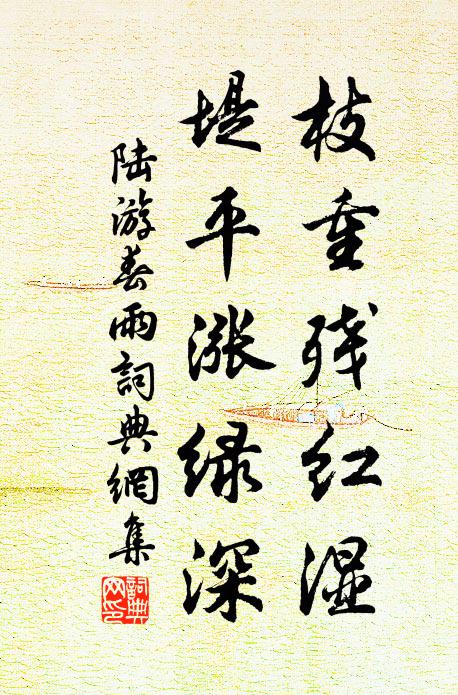 枝重残红湿
堤平涨绿深
陆游春雨詞典網集
詞典
网印